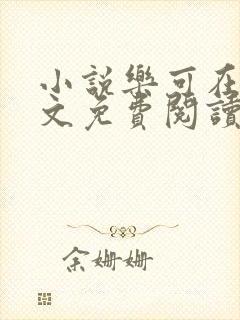 小說樂可在
文免費閱讀
余姗姗